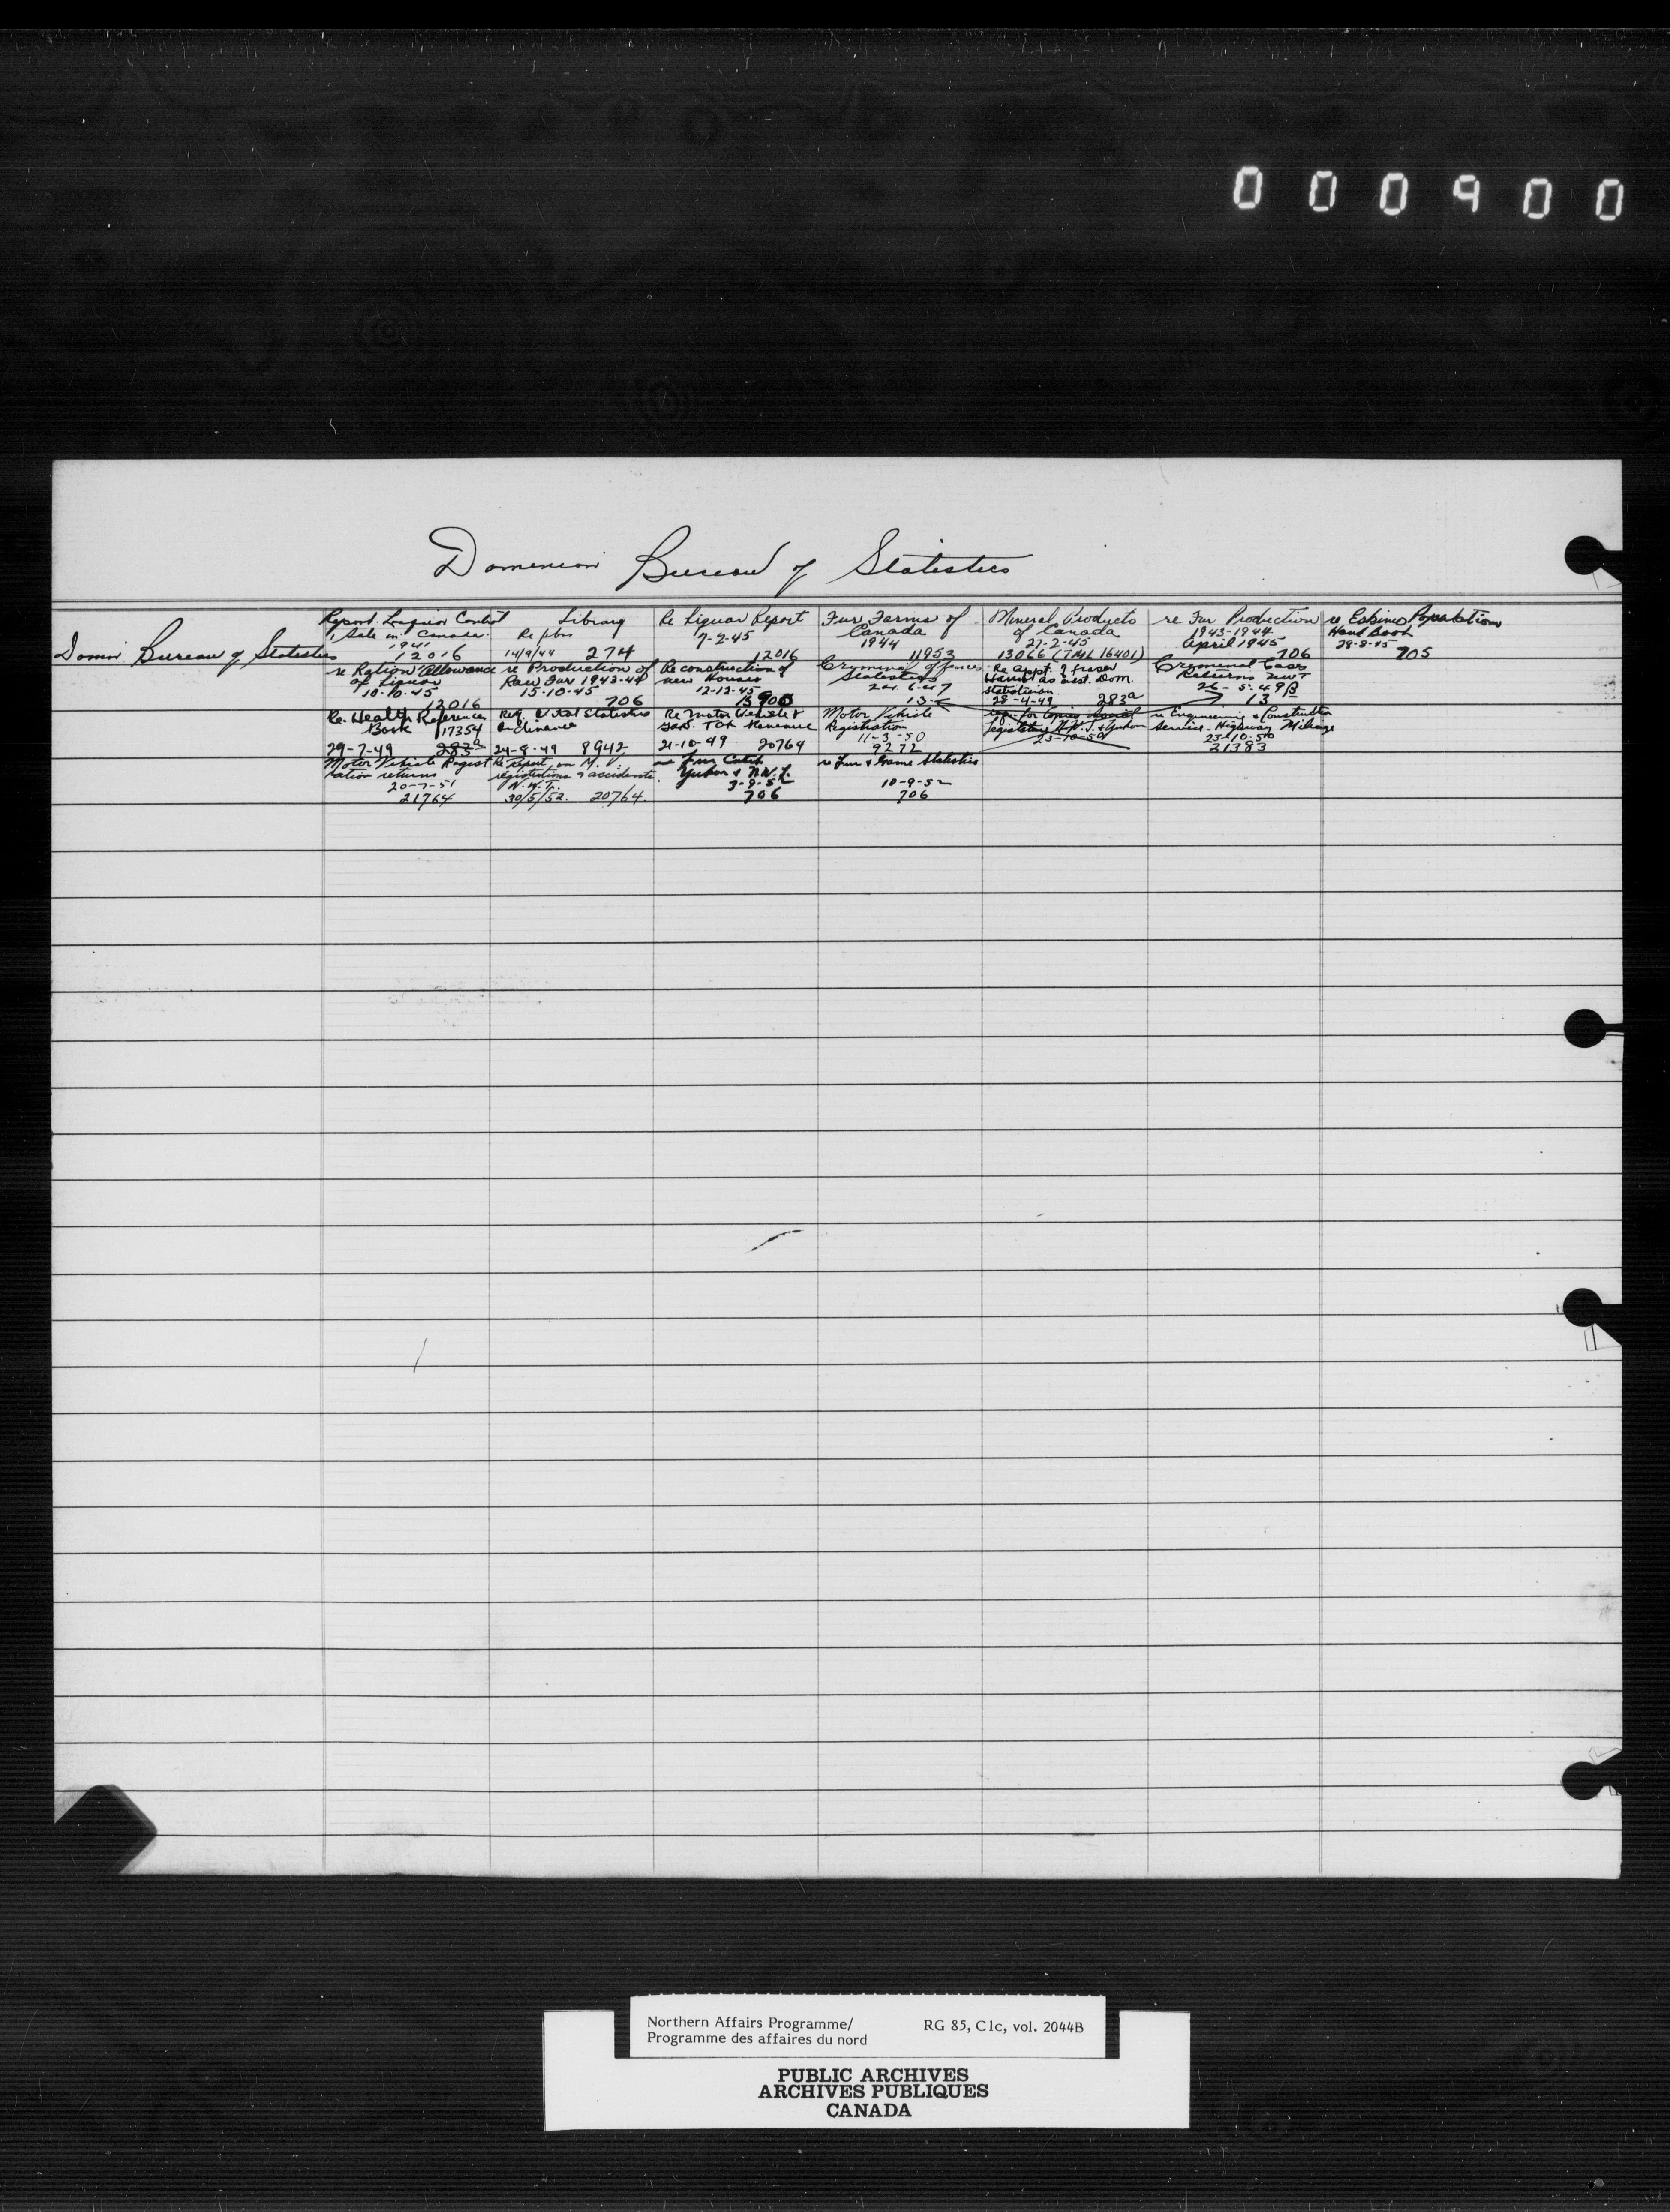 000900
Dominion Bureau of Statistics
Domin Bureau of Statistics
Report Liquor Control
& Sale in Canada
1941
12016
Library
Re pbn
14/9/44 274
Re Liquor Report
7-2-45
12016
Fur Farms of
Canada
1944
11953
Mineral Products
of Canada
27-2-45
13066 (TMI 16401)
re Fur Production
1943-1944
April 1945
706
re Eskimo Population
Hand Book
28-8-45
705
re Ration Allowance
of Liquor
10-10-45
12016
re Production of
Raw Fur 1943-44
15-10-45
706
Reconstruction of
new Houses
12-12-45
13900
Cryminal offences
Statistics
13
Re Appt. of
as asst. Dom.
Statistician
28-4-49 283a
Cryminal Cases
Returns NWT
26-5-49
13
Re. Health Reference
Book 17354
29-7-49
Req. Vital Statistics
Ordinance
24-8-49 8942
Re Motor Vehicle &
Gas. Tax Revenue
21-10-49 20764
Motor Vehicle
Registration
11-3-50
9272
req. for copies
legislature N.W.T. & Yukon
23-10-50
re Engineering & Construction
Service - Highway Mileage
23-10-50
21383
Motor Vehicle Regist
ration returns
20-7-51
21764
Re Report on M.V.
registrations & accidents
N.W.T.
30/5/52. 20764.
re Fur Catch
Yukon & N.W.T.
3-9-52
706
re Fur & Game Statistics
10-9-52
706
Northern Affairs Programme/
Programme des affaires du nord
RG 85, C1c, vol. 2044B
PUBLIC ARCHIVES
ARCHIVES PUBLIQUES
CANADA